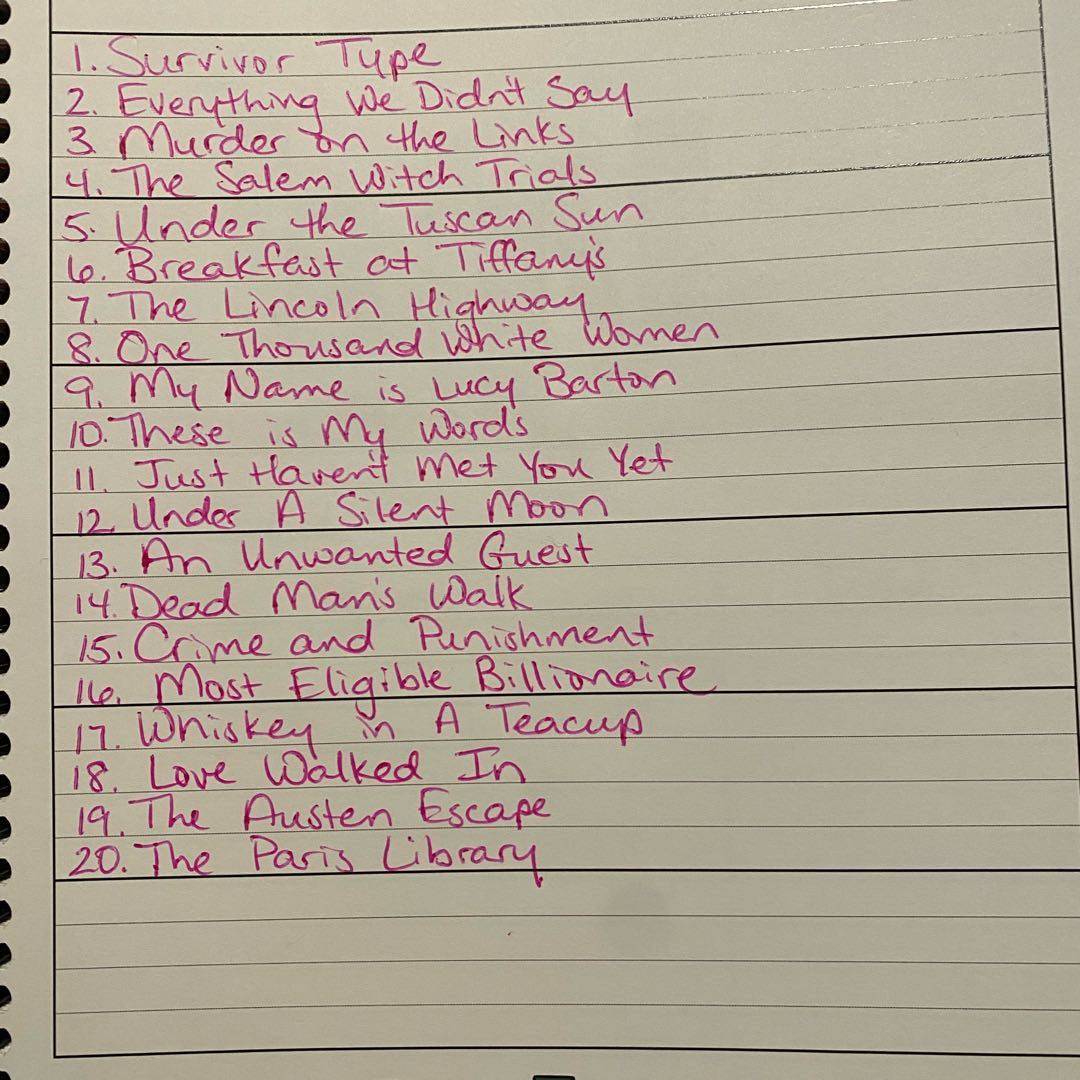 1. Survivor Type
2. Everything We Didn't Say
3. Murder on the Links
4. The Salem Witch Trials
5. Under the Tuscan Sun
6. Breakfast at Tiffany's
7. The Lincoln Highway
8. One Thousand White Women
9. My Name is Lucy Barton
10. These is My Words
11. Just Haven't Met You Yet
12. Under A Silent Moon
13. An Unwanted Guest
14. Dead Man's Walk
15. Crime and Punishment
16. Most Eligible Billionaire
17. Whiskey in A Teacup
18. Love Walked In
19. The Austen Escape
20. The Paris Library